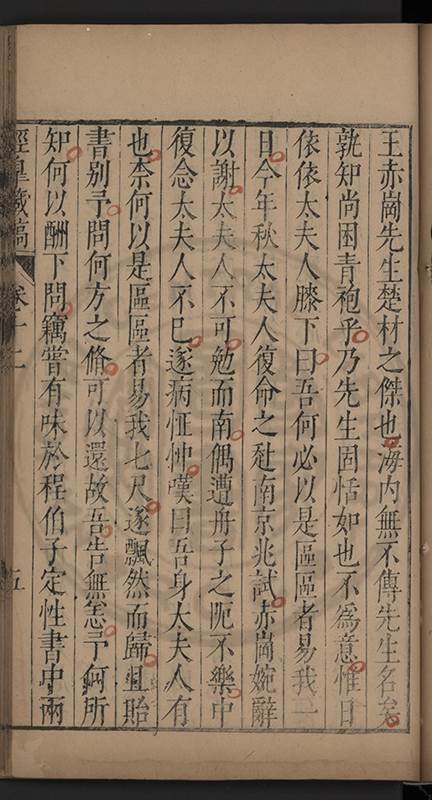 王赤崗先生楚材之傑也海内無不傳先生名矣
孰知尚困青袍乎乃先生固恬如也不為意惟日
依依太夫人膝下曰吾何必以是區區者易我一
日今年秋太夫人復命之赴南京兆試赤崗婉辭
以謝太夫人不可勉而南偶遭舟子之阨不樂中
復念太夫人不已遂病怔忡嘆曰吾身太夫人有
也柰何以是區區者易我七尺遂飄然而歸且貽
書别予問何方之脩可以還故吾告無恙予何所
知何以酬下問竊嘗有味於程伯子定性書中兩
涇臯藏稿
卷十二
五